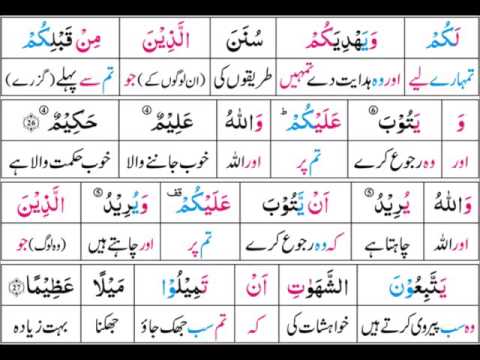 لَكُمْ وَيَهْدِيَكُمْ سُنَنَ الَّذِيْنَ مِنْ قَبْلِكُمْ
تمہارے لیے اور وہ ہدایت دے تمہیں طریقوں کی (ان لوگوں کے) جو تم سے پہلے (گزرے)
وَ يَتُوْبَ ⑥ عَلَيْكُمْ ؕ وَاللهُ عَلِيْمٌ ④ حَكِيْمٌ ④ ﴿26﴾
اور وہ رجوع کرے تم پر اور اللہ خوب جاننے والا خوب حکمت والا ہے
وَاللهُ يُرِيْدُ ⑤ اَنْ يَّتُوْبَ عَلَيْكُمْ قف وَيُرِيْدُ ⑤ الَّذِيْنَ
اور اللہ چاہتا ہے کہ وہ رجوع کرے تم پر اور چاہتے ہیں (وہ لوگ) جو
يَتَّبِعُوْنَ الشَّهَوٰتِ اَنْ تَمِيْلُوْا مَيْلًا عَظِيْمًا ﴿27﴾
وہ سب پیروی کرتے ہیں خواہشات کی کہ تم سب جھک جاؤ جھکنا بہت زیادہ